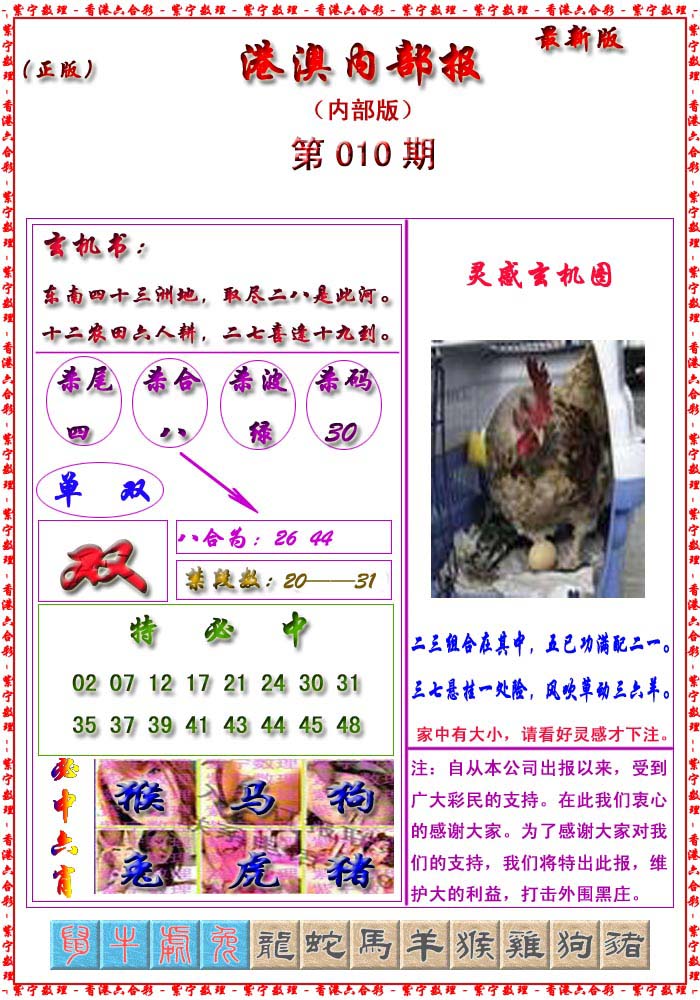 紫宁数理 - 香港六合彩 - 紫宁数理 - 香港六合彩 - 紫宁数理 - 香港六合彩 - 紫宁数理 - 香港六合彩 - 紫宁数理
最新版
（正版）
港澳内部报
（内部版）
第 010 期
玄机书：
东南四十三洲地，取尽二八是此河。
十二农田六人耕，二七喜逢十九到。
杀尾 杀合 杀波 杀码
四 八 绿 30
单 双
双
八合为：26 44
禁段数：20——31
特 必 中
02 07 12 17 21 24 30 31
35 37 39 41 43 44 45 48
必中六肖
猴 马 狗
兔 虎 猪
灵感玄机图
二三组合在其中，五已功满配二一。
三七悬挂一处险，风吹草动三六羊。
家中有大小，请看好灵感才下注。
注：自从本公司出报以来，受到
广大彩民的支持。在此我们衷心
的感谢大家。为了感谢大家对我
们的支持，我们将特出此报，维
护大的利益，打击外围黑庄。
鼠 牛 虎 兔 龍 蛇 馬 羊 猴 雞 狗 豬
紫宁数理 - 香港六合彩 - 紫宁数理 - 香港六合彩 - 紫宁数理 - 香港六合彩 - 紫宁数理 - 香港六合彩 - 紫宁数理